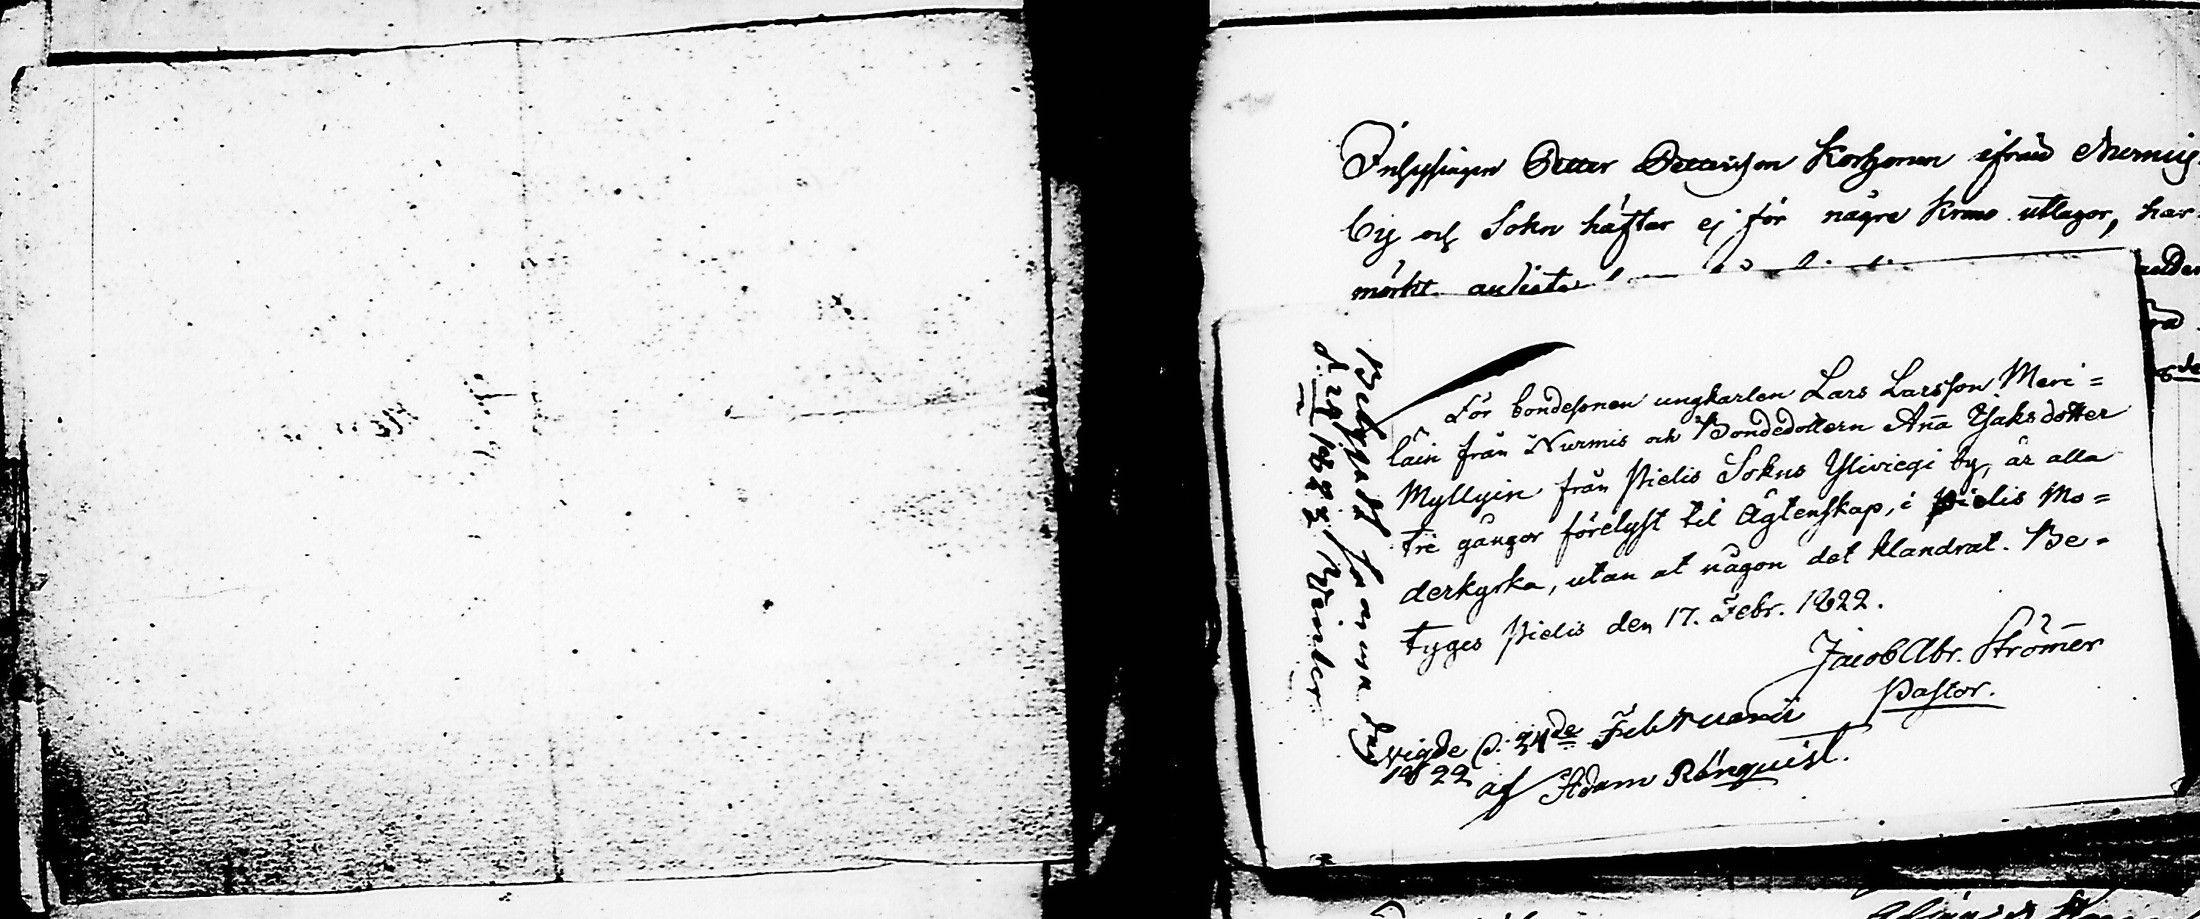 Inhysingen Petter Pettersson Korhonen ifrån Nurmis
by och Sokn häftar ej för några Krono utlagor, har
märkt
För bondesonen ungkarlen Lars Larsson Meri=
läin från Nurmis och Bondedottern Aña Isaksdotter
Myllyin från Pielis Sokns Ylivieqi by, är alla
tre gångor förelyst til Ägtenskap, i Pielis Mo=
derkyrka, utan at någon det klandrat. Be=
tyges Pielis den 17. Febr. 1822.
Jacob Abr. Strömer
Pastor.
vigde d. 24de Februarii
1822 af Adam Rönquist.
samma dag
1822